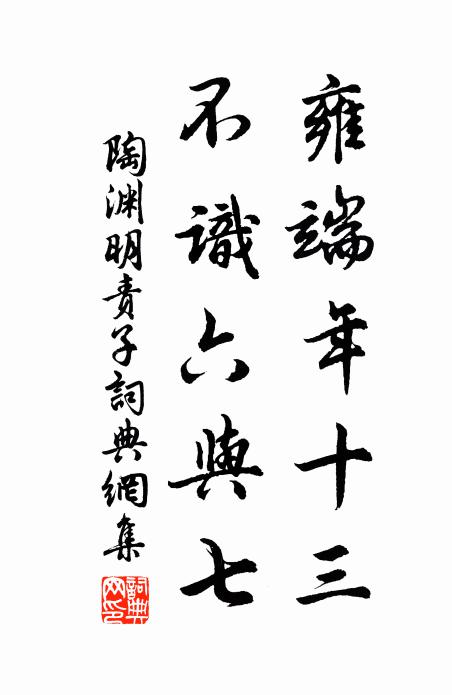 雍端年十三
不識六與七
陶渊明责子詞典網集
詞典
网印